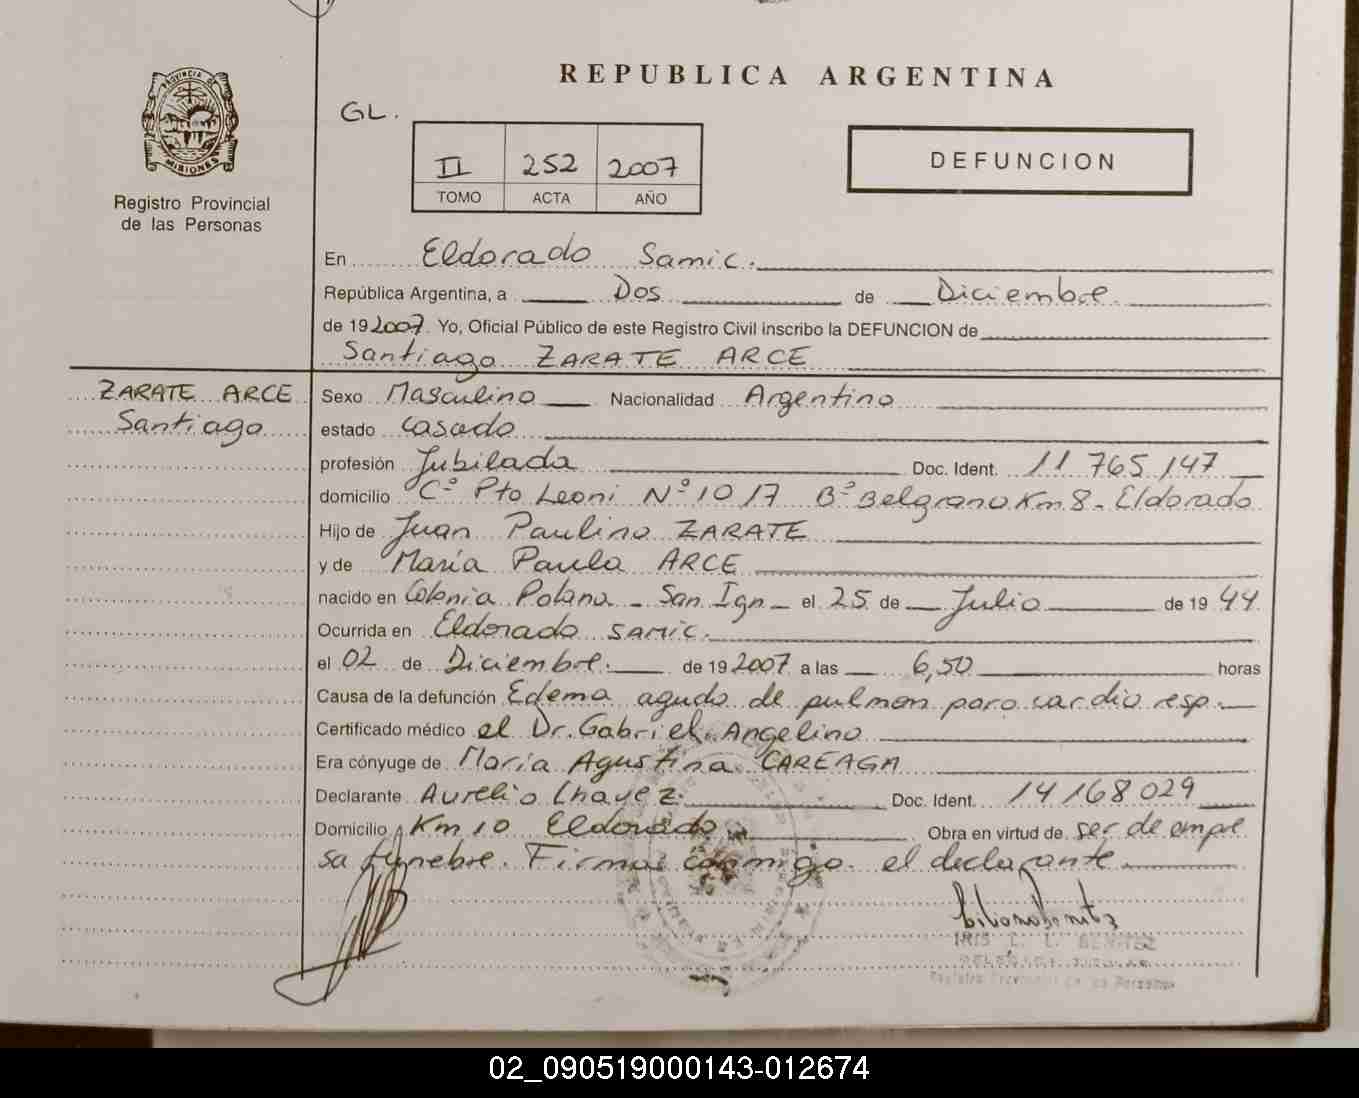 PROVINCIA DE
MISIONES
Registro Provincial
de las Personas
REPUBLICA ARGENTINA
GL.
II 252 2007
TOMO ACTA AÑO
DEFUNCION
En Eldorado Samic.
República Argentina, a Dos de Diciembre
de 19 2007. Yo, Oficial Público de este Registro Civil inscribo la DEFUNCION de
Santiago ZARATE ARCE
ZARATE ARCE
Santiago
Sexo Masculino Nacionalidad Argentino
estado Casado
profesión Jubilada Doc. Ident. 11 765 147
domicilio Cº Pto Leoni Nº 1017 Bº Belgrano Km 8 - Eldorado
Hijo de Juan Paulino ZARATE
y de María Paula ARCE
nacido en Colonia Polana - San Ign - el 25 de Julio de 19 44
Ocurrida en Eldorado SAMIC.
el 02 de Diciembre. de 19 2007 a las 6,50 horas
Causa de la defunción Edema agudo de pulmon paro cardio resp.
Certificado médico el Dr. Gabriel Angelino
Era cónyuge de María Agustina CAREAGA
Declarante Aurelio Chavez. Doc. Ident. 14 168 029
Domicilio Km 10 Eldorado Obra en virtud de ser de empre
sa funebre. Firma conmigo el declarante
IRIS L. L. BENITEZ
Registro Provincial de las Personas
02_090519000143-012674